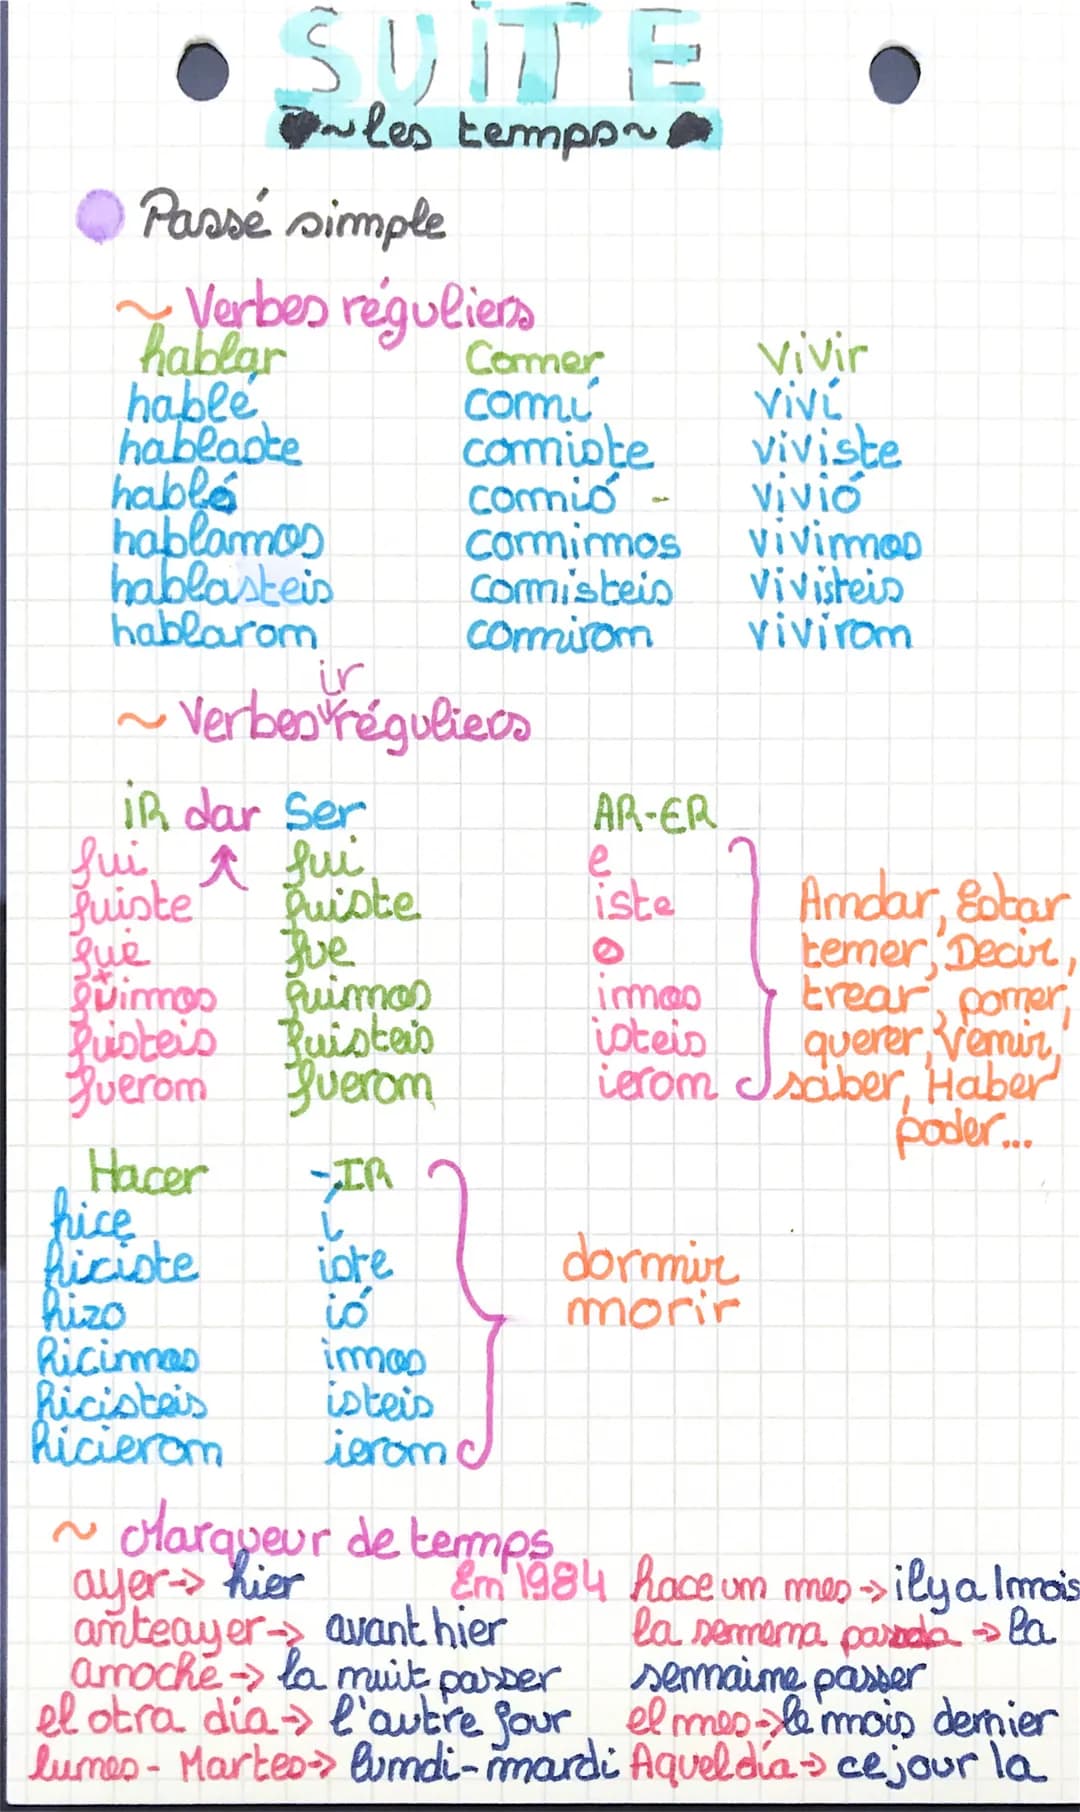 SUITE
~les temps~
Passé simple
~ Verbes réguliers
hablar Comer vivir
hablé comí viví
hablaste comiste viviste
habló comió vivió
hablamos comimos vivimos
hablasteis comisteis vivisteis
hablaron comiron viviron
ir
~ Verbes réguliers
iR dar Ser AR-ER
fui fui e
fuiste fuiste iste
fue fue o
fuimos fuimos imos
fuisteis fuisteis isteis
fueron fueron ieron
Andar, Estar
tener, Decir,
trear, poner,
querer, Venir,
saber, Haber
poder...
Hacer -IR
hice í
hiciste iste
hizo ió
hicimos imos
hicisteis isteis
hicieron ieron
dormir
morir
~ Marqueur de temps
ayer→ hier En 1984 hace un mes→ il y a 1 mois
anteayer→ avant hier la semena pasada → la
anoche → la nuit passer semaine passer
el otra día→ l'autre jour el mes→ le mois dernier
lunes - Martes→ lundi-mardi Aquel día→ ce jour la